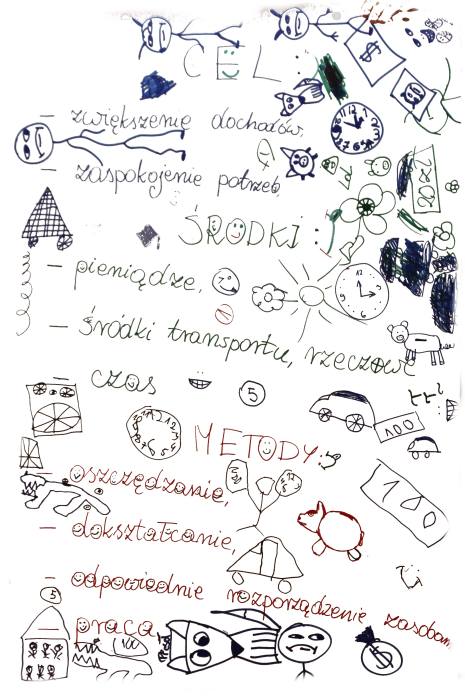 CEL:
$
– zwiększenie dochodów
– zaspokojenie potrzeb,
ŚRODKI:
– pieniądze,
– środki transportu, rzeczowe
– czas
5
100
METODY:
– oszczędzanie,
100
– dokształcanie,
– odpowiednie rozporządzenie zasobami
5
– praca,
100
$